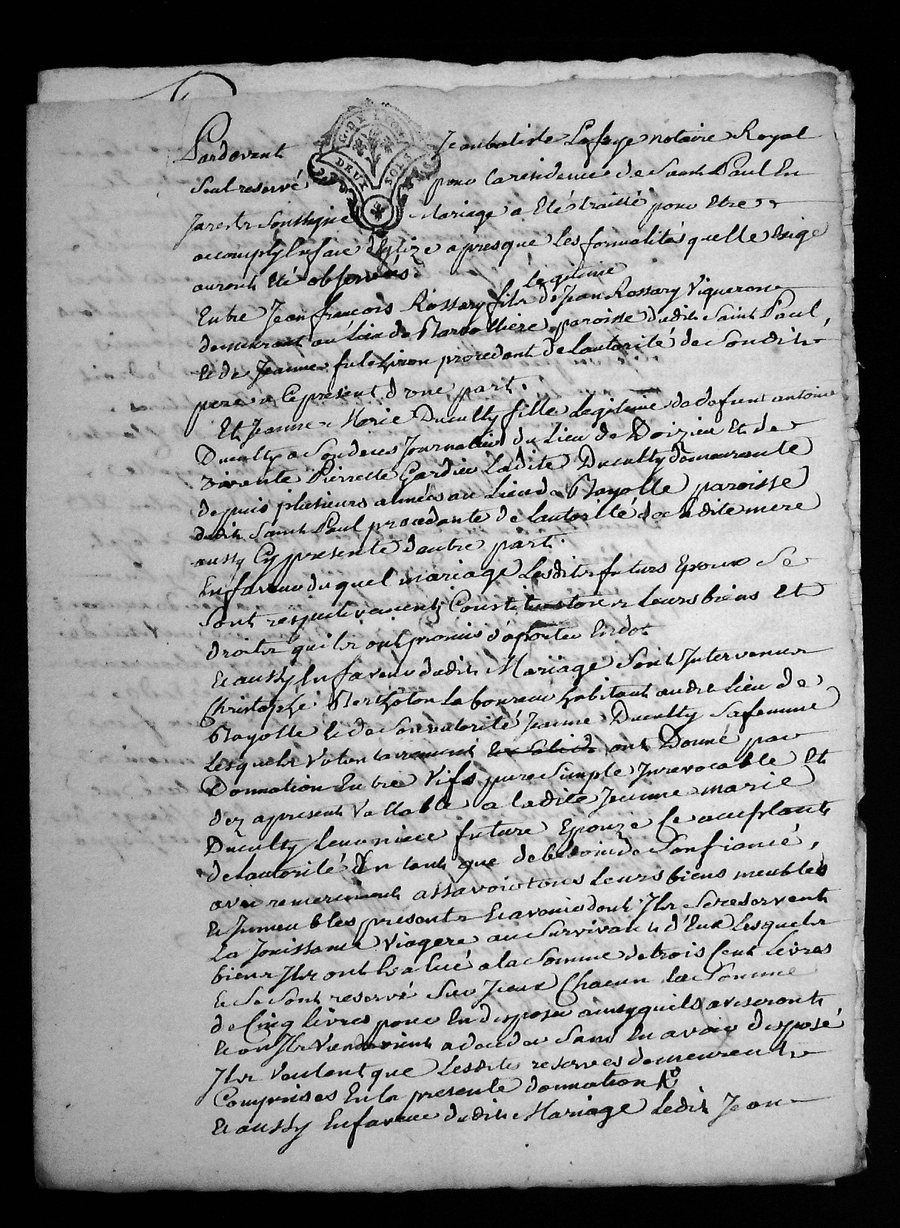 G. DE LYON
DEUX SOLS
Pardevent Jean batiste Lafaye notaire Royal
Soul reservé pour La residence de Saint Paul En
Jarest Soussigné Mariage a Eté traitté pour Etre
accomply En face d'Eglize apresque les formalités quelle Exige
auront Eté observés.
Entre Jean françois Rossary fils legitime de Jean Rossary Vigneron
demeurant au Lieu de paroisse dudit Saint Paul,
Et de Jeanne procedant de Lautorité de Sondit
pere a Ce present d'une part.
Et Jeanne Marie Ducully fille Legitime de defunt antoine
Ducully a Son deces Journalier du Lieu de Doizieu Et de
vivante Pierrette Gardier Ladite Ducully demeurante
depuis plusieurs années au Lieu de paroisse
dudit Saint Paul procedante de Lautorité de Ladite mere
aussy Cy presente dautre part.
En faveur duquel mariage Lesdits futurs Epoux Se
Sont respectivement Constitués tous Leurs biens Et
droits quils ont promis d'aporter En dot
Et aussy En faveur dudit Mariage Sont Intervenus
Christophe Bertholon Laboureur habitant audit Lieu de
Et de Son autorité Jeanne Ducully Sa femme
Lesquels Volontairement ont Donné par
Donnation Entre Vifs pure Simple Irrevocable Et
dez apresent Vallable a Ladite Jeanne marie
Ducully Leur niece future Epouze Ce acceptante
de Lautorité En tant que de besoin de Son fiancé,
avec remerciment assavoir tous Leurs biens meubles
Et Immeubles presents Et avenir dont Ils Se reservent
La Jouissance Viagere au Survivant d'Eux Lesquels
biens Ils ont Evalué a la Somme de trois Cent Livres
Et Se Sont reservé Sur Iceux Chacun La Somme
de Cinq Livres pour En disposer ainsy quils aviseront
Et ou Ils Viendroient a deceder Sans En avoir disposé
Ils veulent que Lesdites reserves demeurent
Comprises En La presente donnation
Et aussy En faveur dudit Mariage Ledit Jean